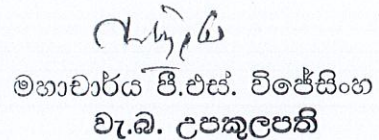 මහාචාර්ය පී.එස්. විජේසිංහ
වැ.බ. උපකුලපති